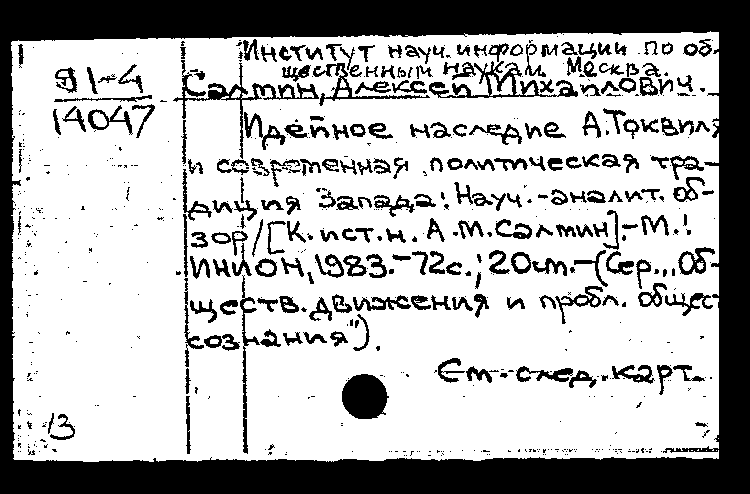 Институт науч. информации по об-
щественным наукам. Москва.
91-4
14047
Салмин, Алексей Михайлович.
Идейное наследие А. Токвиля
и современная политическая тра-
диция Запада: Науч.-аналит. об-
зор/[К. ист. н. А.М. Салмин].-М.:
ИНИОН, 1983.-72с.; 20см.-(Сер. „Об-
ществ. движения и пробл. общест
сознания").
См. след. карт.
13